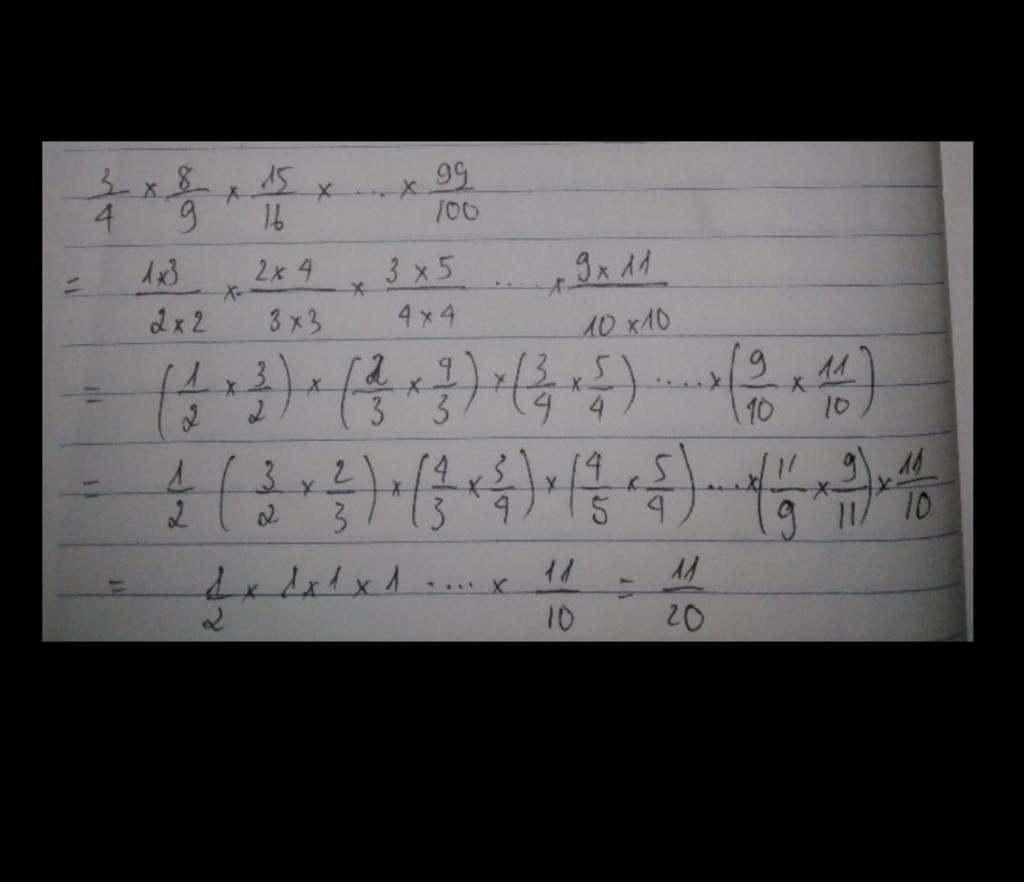 3/4 × 8/9 × 15/16 × ... × 99/100
= 1×3/2×2 × 2×4/3×3 × 3×5/4×4 .... × 9×11/10×10
= (1/2 × 3/2) × (2/3 × 4/3) × (3/4 × 5/4) ....× (9/10 × 11/10)
= 1/2 (3/2 × 2/3) × (4/3 × 3/4) × (4/5 × 5/4) ...× (11/9 × 9/11) × 11/10
= 1/2 × 1×1×1 .... × 11/10 = 11/20